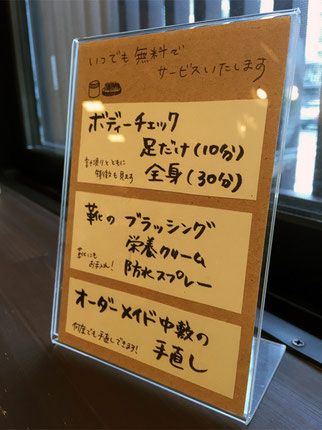 いつでも無料で
サービスいたします
ボディーチェック
足だけ(10分)
全身(30分)
特徴も見える
靴の ブラッシング
栄養クリーム
防水スプレー
靴にも
お手入れ!
オーダーメイド中敷の
手直し
何度でも手直しできます!